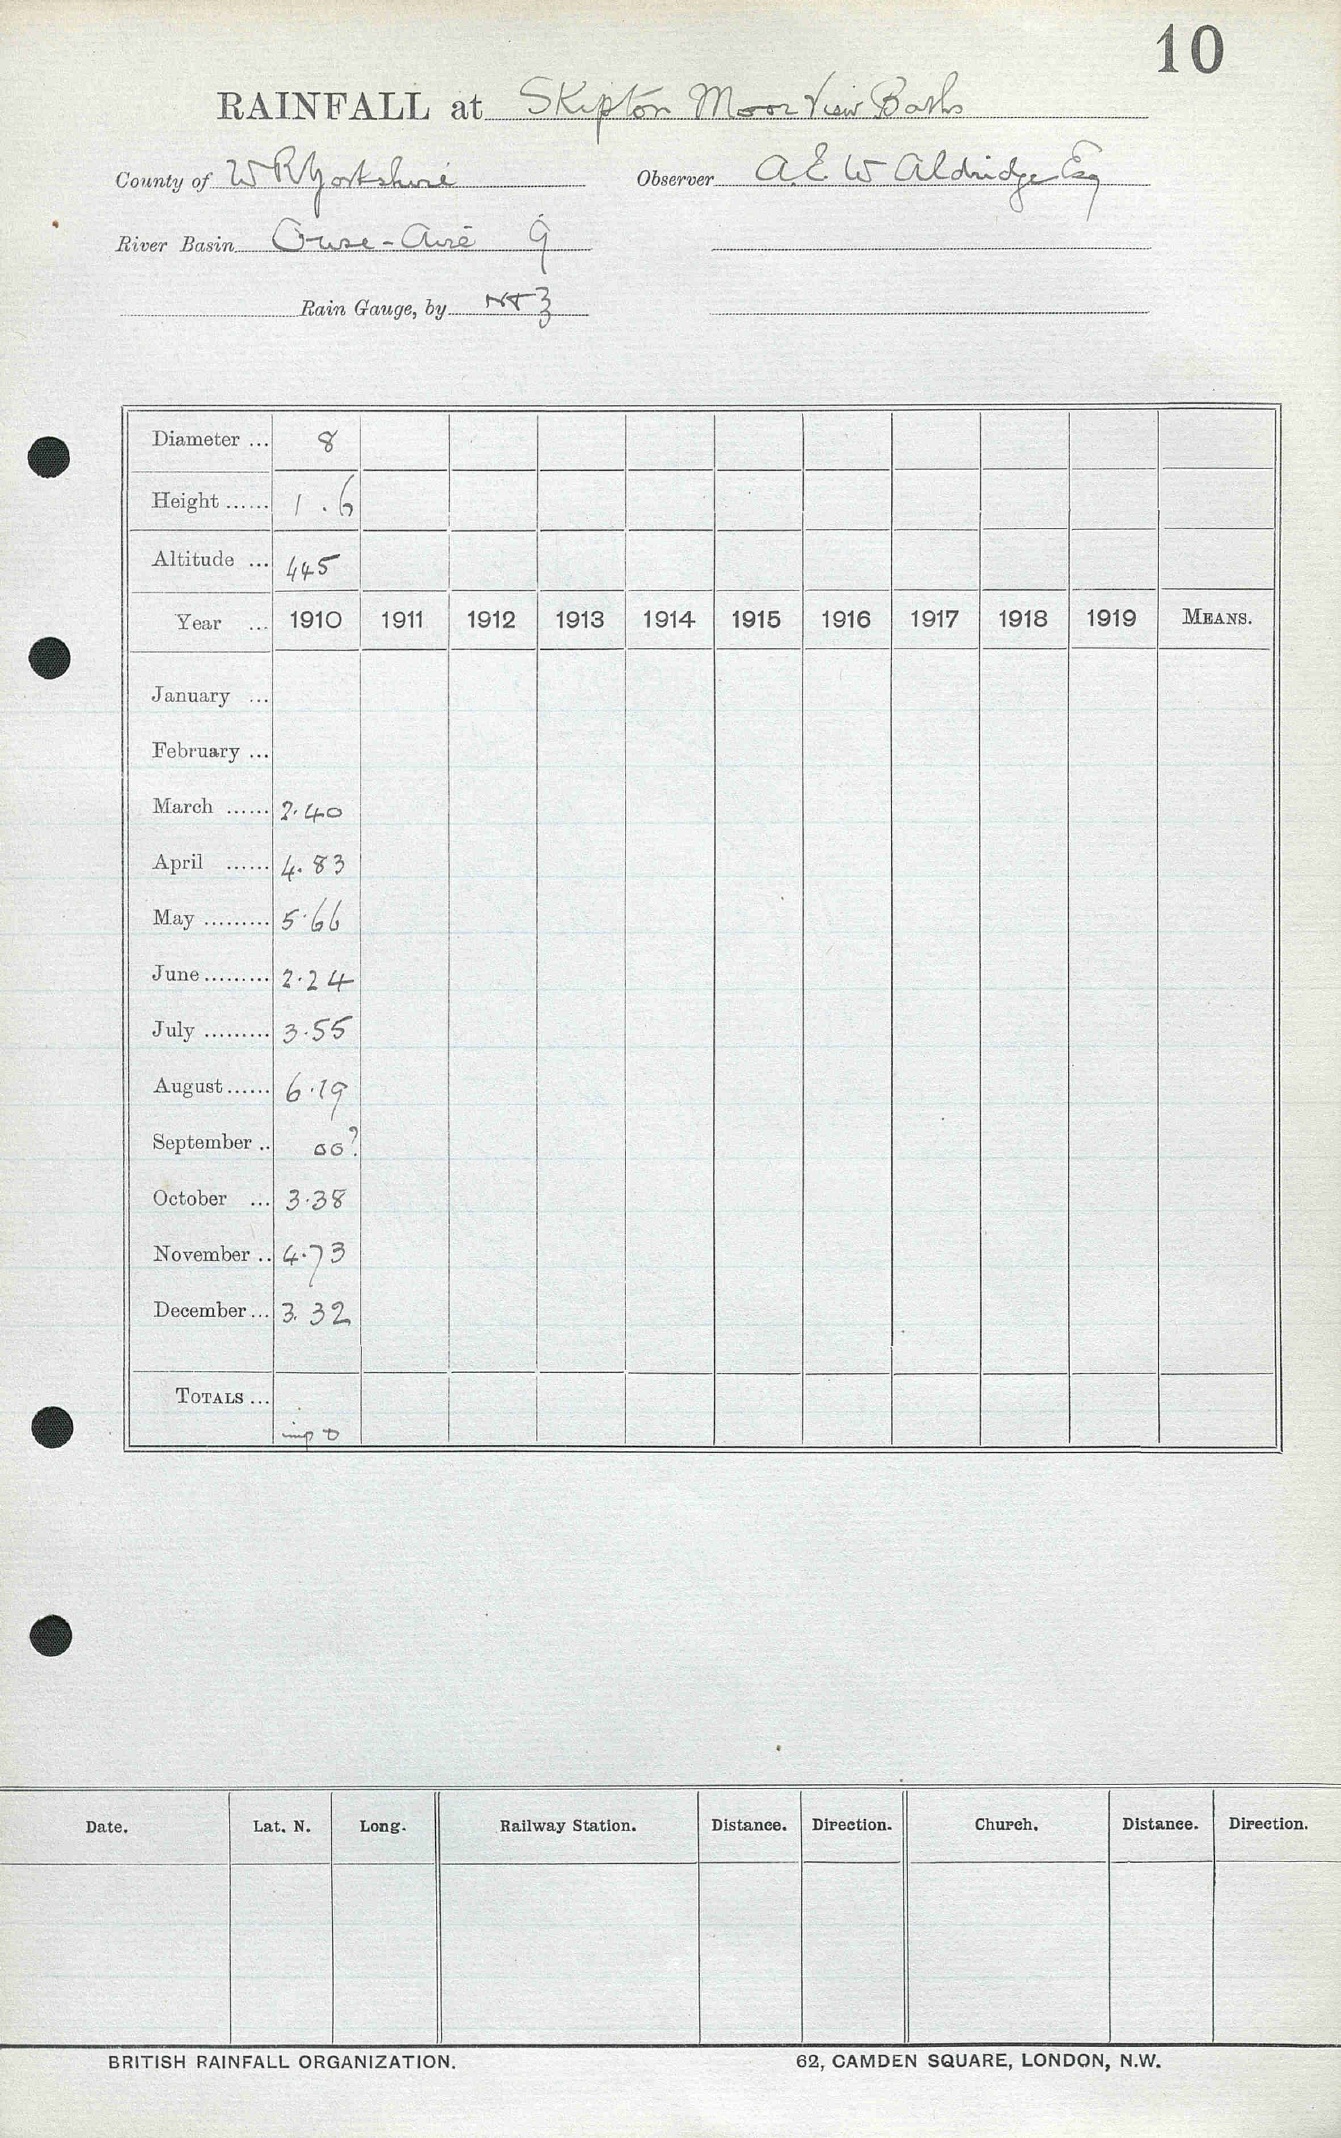 10
RAINFALL at Skipton Moor View Baths
County of W R Yorkshire Observer A. E. W Aldridge Esq
River Basin Ouse - Aire 9
Rain Gauge, by
Diameter ... 8
Height ...... 1 . 6
Altitude ... 445
Year ... 1910 1911 1912 1913 1914 1915 1916 1917 1918 1919 MEANS.
January ...
February ...
March ...... 2.40
April ...... 4.83
May ......... 5.66
June ......... 2.24
July ......... 3.55
August ...... 6.19
September .. 00?
October ... 3.38
November .. 4.73
December ... 3.32
TOTALS ...
Date. Lat. N. Long. Railway Station. Distance. Direction. Church. Distance. Direction.
BRITISH RAINFALL ORGANIZATION. 62, CAMDEN SQUARE, LONDON, N.W.